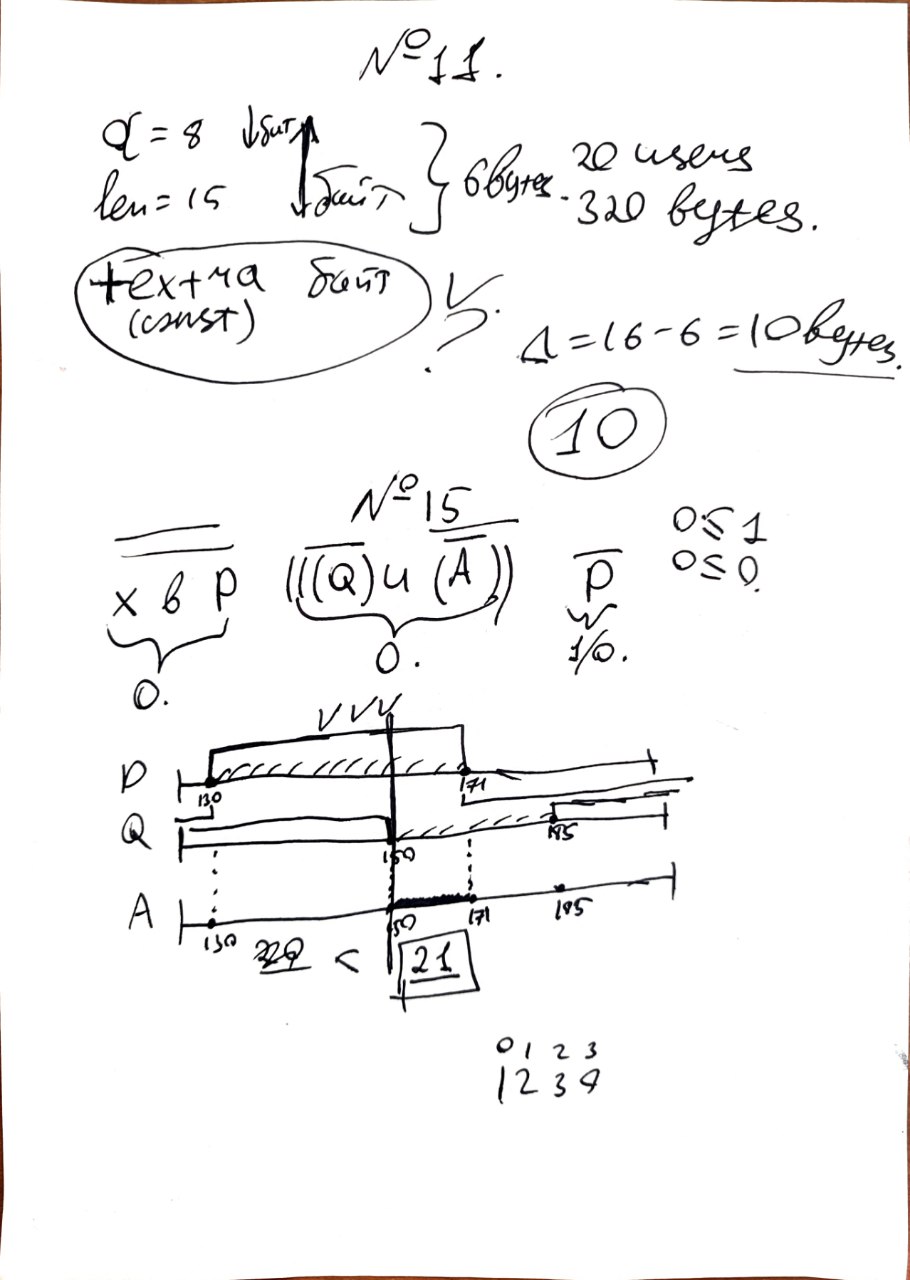 №11.
α = 8 ↓бит
len = 15 байт } 6 bytes. 20 users
320 bytes.
+extra байт
(const)
?
Δ = 16 - 6 = 10 bytes.
10
№15
x в P (((Q) и (A))) P
0≤1
0≤0.
0. 0. 1/0.
P 130 171
Q 150 185
A 130 150 171 185
< 21
0 1 2 3
1 2 3 4